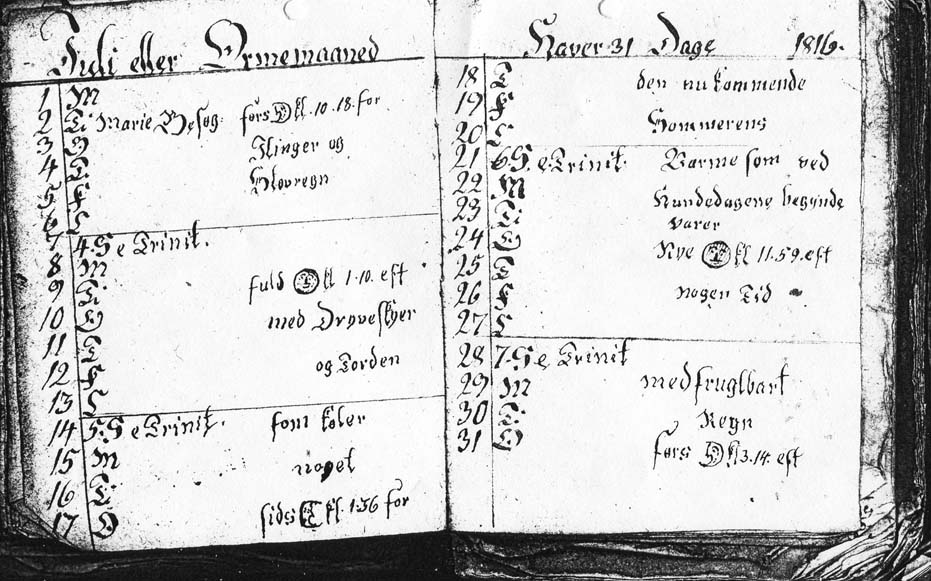 Juli eller Ormemaaned
1 M
2 Ti Marie Besøg. førs kl. 10.18. for
3 O Ilinger og
4 T
5 F Slovregn
6 L
7 4. S e Trinit.
8 M
9 Ti fuld kl 1.10. eft
10 O med Dryveskyer
11 T
12 F og Torden
13 L
14 5. S e Trinit. som køler
15 M noget
16 Ti
17 O sids kl. 1.36 for
Haver 31 Dage 1816.
18 T den nu kommende
19 F
20 L Sommerens
21 6 S e Trinit. Varme som ved
22 M
23 Ti Hundedagene begynde
varer
24 O
25 T Nye kl 11.59. eft
26 F nogen Tid
27 L
28 7. S e Trinit
29 M med frugtbart
30 Ti Regn
31 O førs kl 3.14. eft